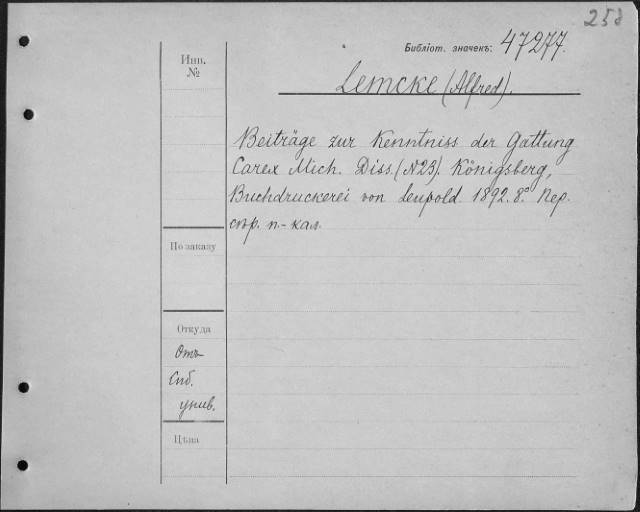 258
Библіот. значекъ: 47277.
Инв.
№
Lemcke (Alfred).
Beiträge zur Kenntniss der Gattung
Carex Mich. Diss. (N23). Königsberg,
Buchdruckerei von Leupold 1892. 8°. Пер.
стр. п.-кал.
По заказу
Откуда
Отъ
Спб.
унив.
Цѣна